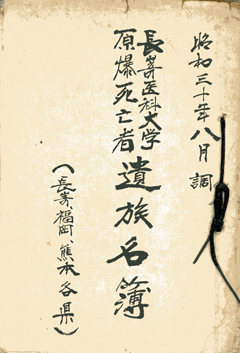 昭和三十年八月調
長崎医科大学
原爆死亡者
遺族名簿
(長崎、福岡、熊本各県)